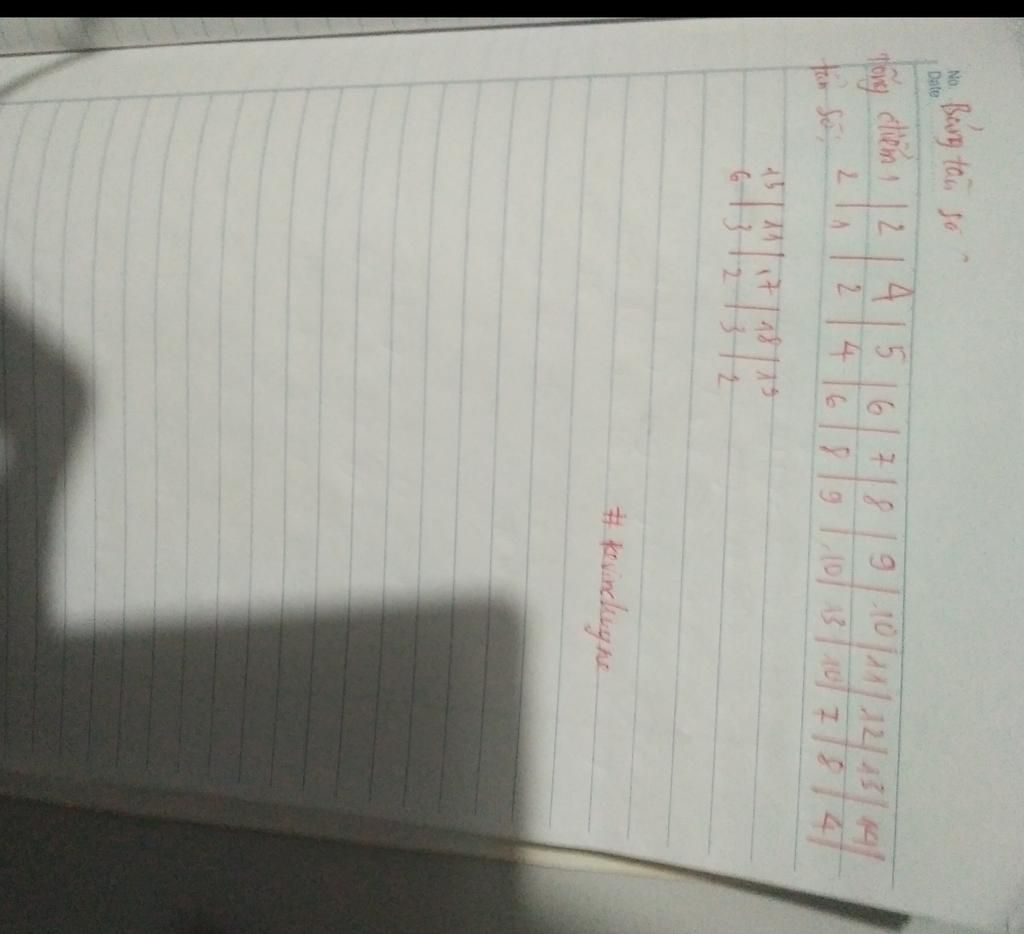 No.
Date
Bảng tần số
Tổng điểm 1 | 2 | 4 | 5 | 6 | 7 | 8 | 9 | 10 | 11 | 12 | 13 | 14 |
tần số: 2 | 1 | 2 | 4 | 6 | 8 | 9 | 10 | 13 | 10 | 7 | 8 | 4 |
15 | 11 | 17 | 18 | 19
6 | 3 | 2 | 3 | 2